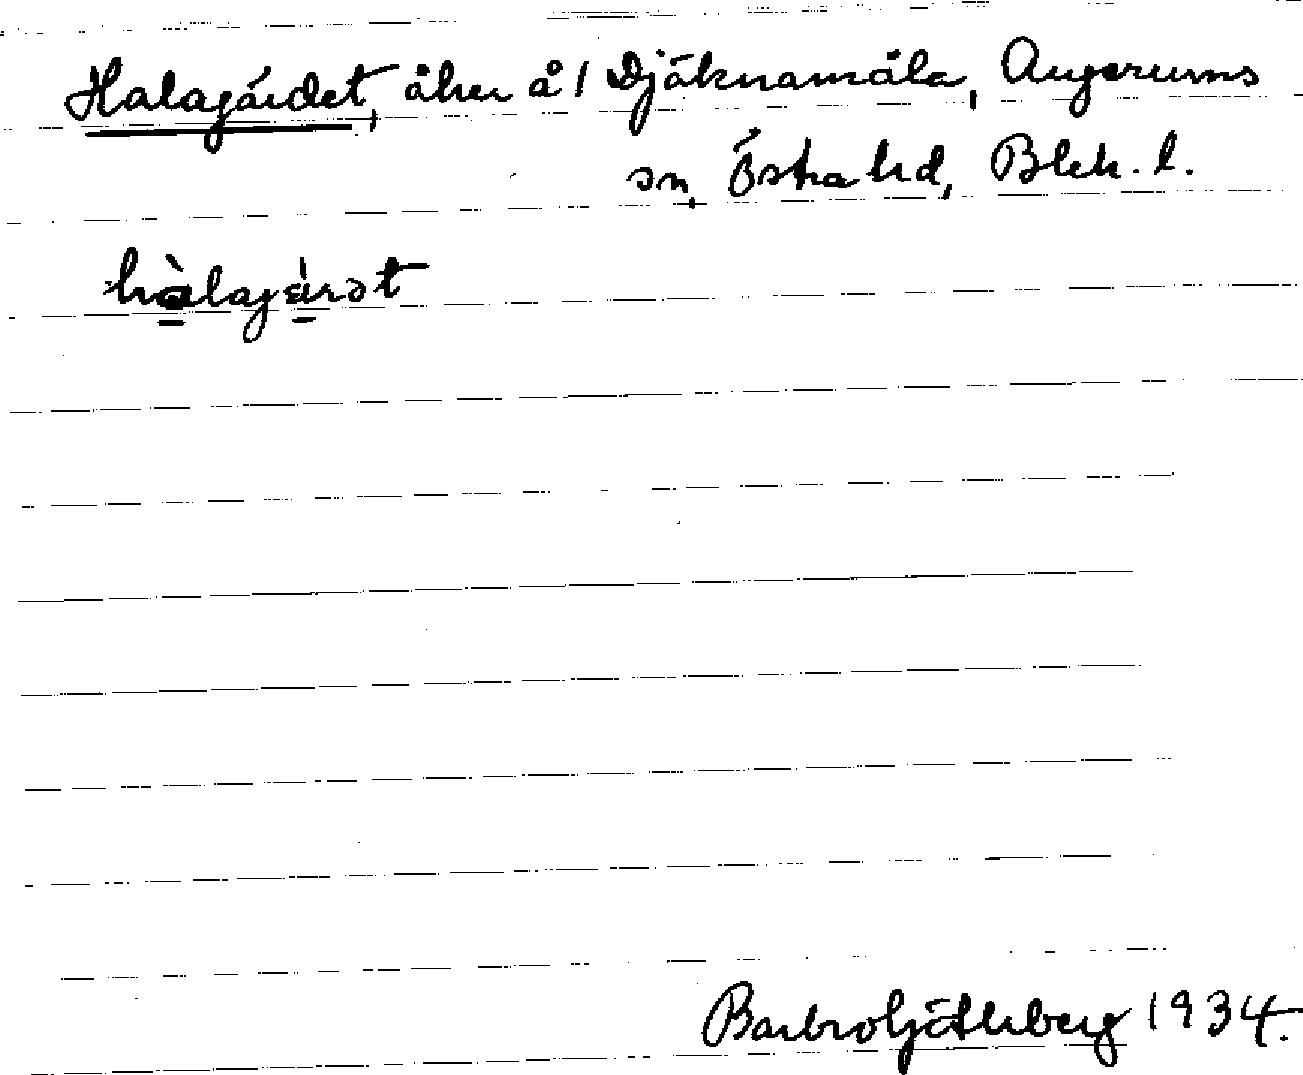 Halagärdet, åker å 1 Djäknamåla, Augerums
sn, Östra hd, Blek. l.
hàlagärət
Barbro Götherberg 1934.